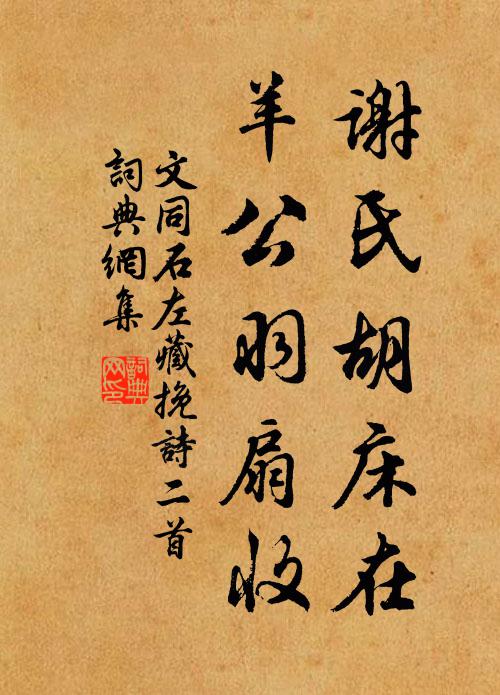 謝氏胡床在
羊公羽扇收
文同石左藏挽詩二首
詞典網集
詞典
网印